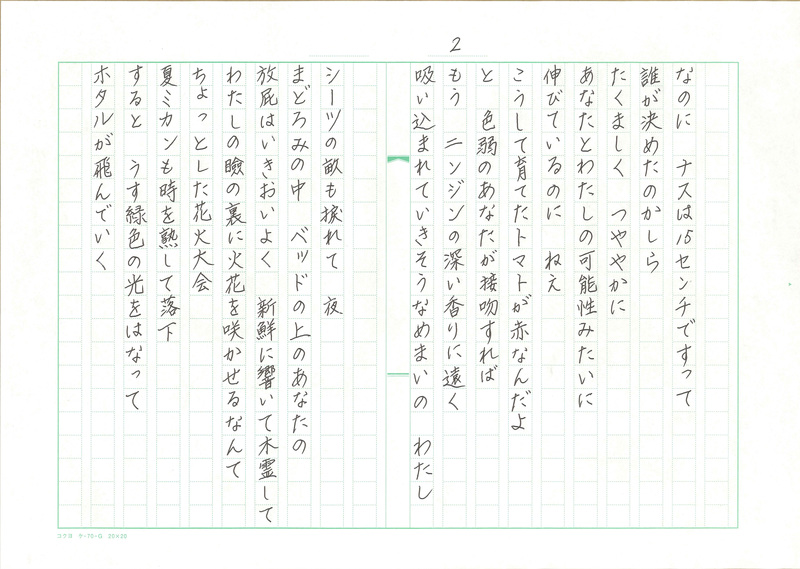 2
なのに　ナスは15センチですって
誰が決めたのかしら
たくましく　つややかに
あなたとわたしの可能性みたいに
伸びているのに　ねえ
こうして育てたトマトが赤なんだよ
と　色弱のあなたが接吻すれば
もう　ニンジンの深い香りに遠く
吸い込まれていきそうなめまいの　わたし
シーツの畝も捩れて　夜
まどろみの中　ベッドの上のあなたの
放屁はいきおいよく　新鮮に響いて木霊して
わたしの瞼の裏に火花を咲かせるなんて
ちょっとした花火大会
夏ミカンも時を熟して落下
すると　うす緑色の光をはなって
ホタルが飛んでいく
コクヨ　ケ-70-G　20×20